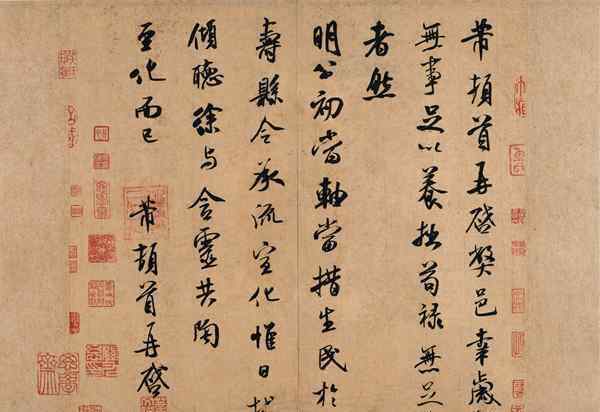 芾頓首再啓弊邑幸歲
無事足以養拙苟祿無足
者然
明公初當軸當措生民於
壽縣令承流宣化惟日
傾聽徐與含靈共陶
至化而已
芾頓首再啓